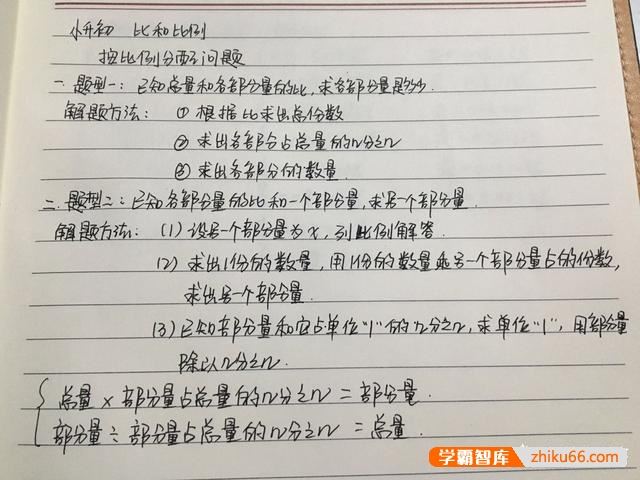 小升初 比和比例
按比例分配问题
一.题型一:已知总量和各部分量的比,求各部分量是多少.
解题方法: ①根据比求出总份数
②求出各部分占总量的n分之n
③求出各部分的数量.
二.题型二:已知各部分量的比和一个部分量,求另一个部分量.
解题方法:(1)设另一个部分量为x,列比例解答.
(2)求出1份的数量,用1份的数量乘另一个部分量占的份数,
求出另一个部分量.
(3)已知部分量和它占单位"1"的n分之n,求单位"1",用部分量
除以n分之n.
总量×部分量占总量的n分之n=部分量.
部分量÷部分量占总量的n分之n=总量.
学霸智库 zhiku66.com